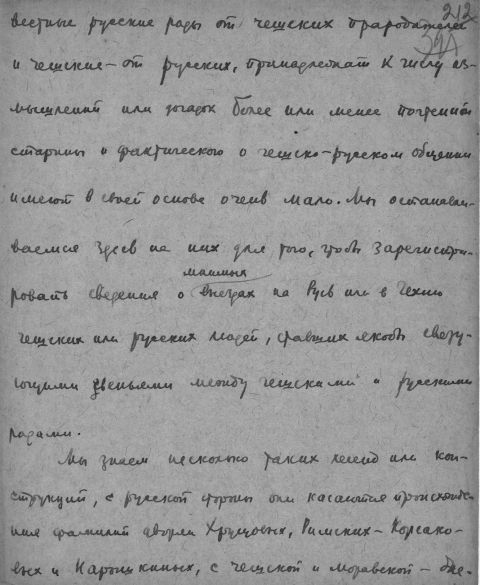 212
39А
вестные русские роды от чешских прародителей
и чешские – от русских, принадлежат к числу из-
мышлений или догадок более или менее почтенной
старины и фактического о чешско-русском общении
имеют в своей основе очень мало. Мы останавли-
ваемся здесь на них для того, чтобы зарегистри-
ровать сведения о мнимых выездах на Русь или в Чехию
чешских или русских людей, ставших якобы связу-
ющими звеньями между чешскими и русскими
родами.
Мы знаем несколько таких легенд или кон-
струкций, с русской стороны они касаются происхожде-
ния фамилий дворян Хрущовых, Римских-Корсако-
вых и Нарышкиных, с чешской и моравской –